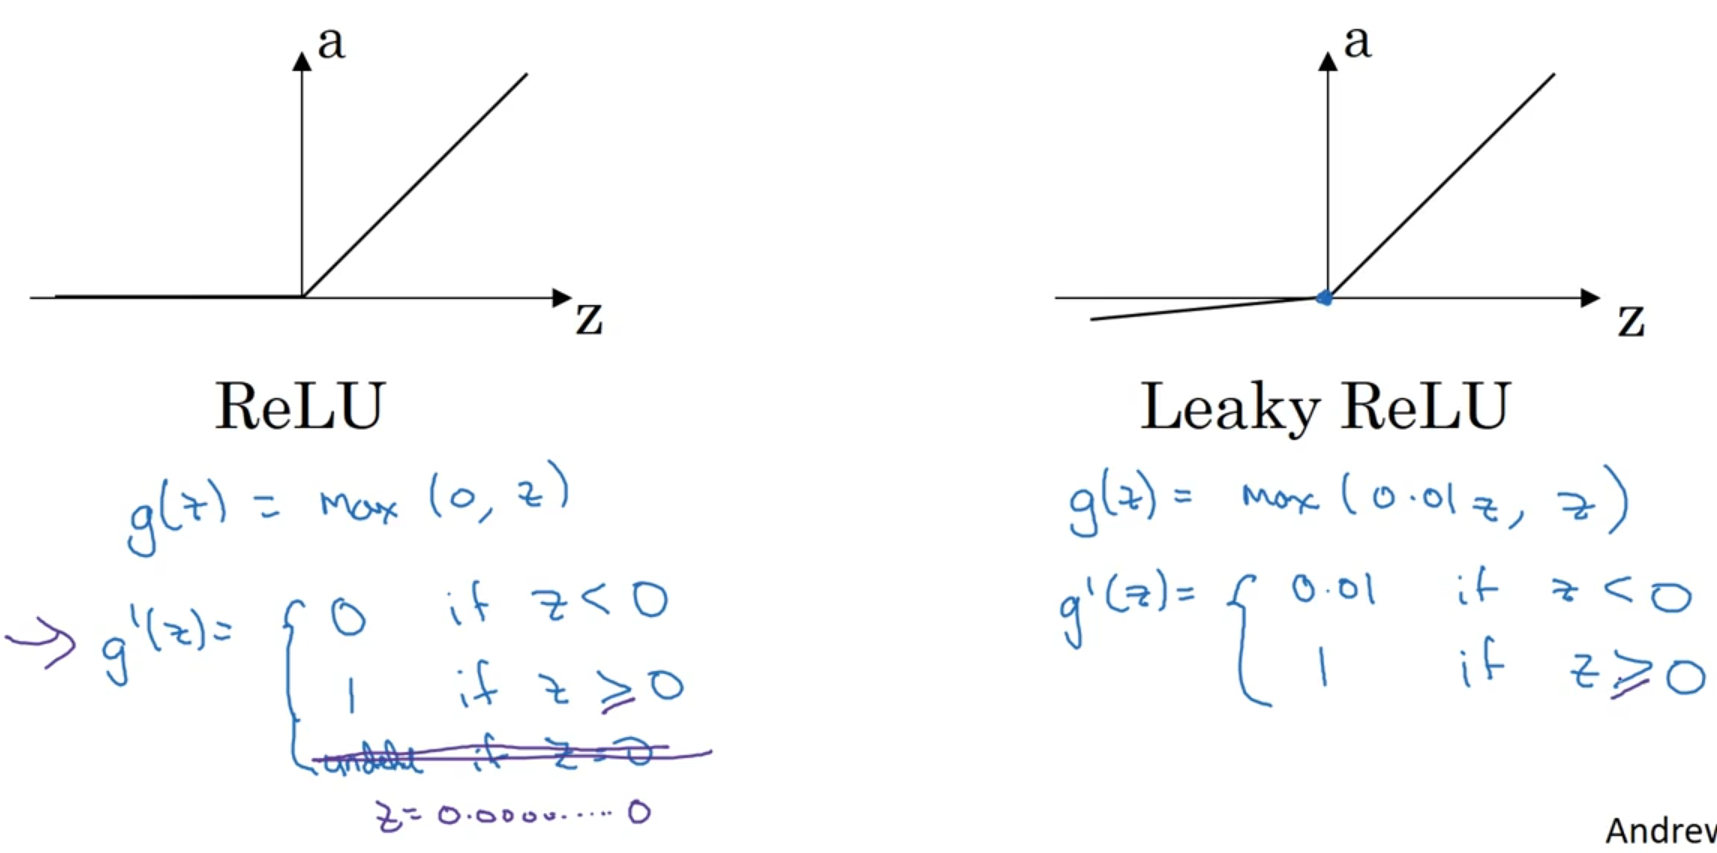 a
z
ReLU
g(z) = max (0, z)
→ g'(z) = { 0 if z < 0
1 if z ≥ 0
if z = 0
z = 0.0000......0
a
z
Leaky ReLU
g(z) = max (0.01z, z)
g'(z) = { 0.01 if z < 0
1 if z ≥ 0
Andrew